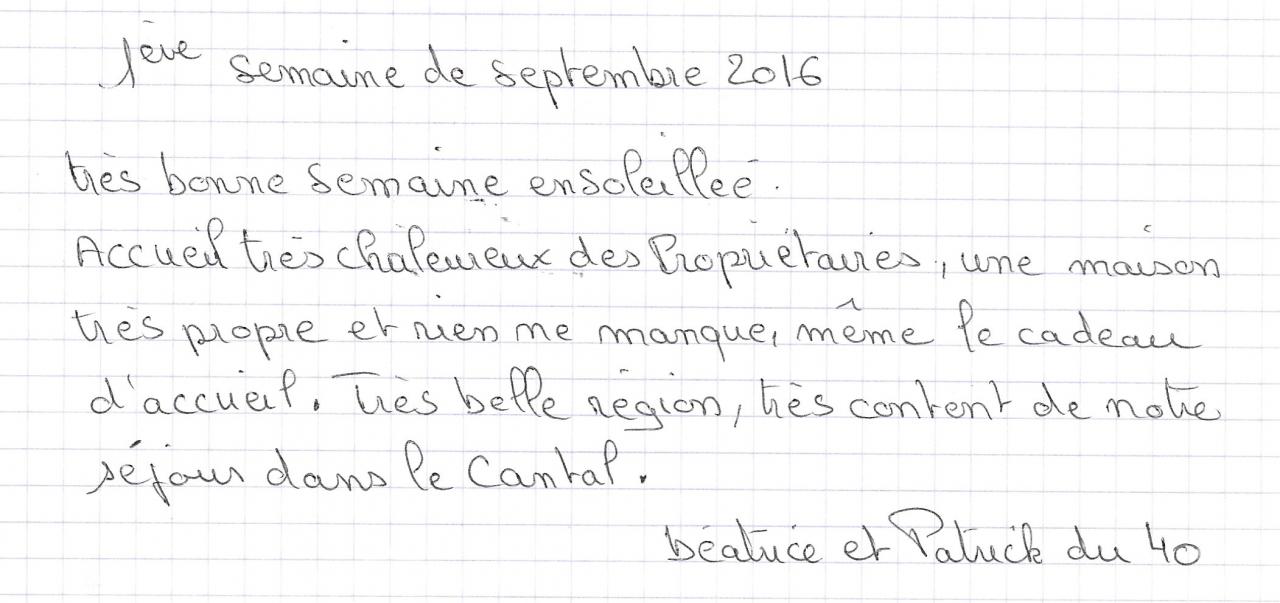 1ère semaine de septembre 2016
très bonne semaine ensoleillée.
Accueil très chaleureux des Propriétaires, une maison
très propre et rien ne manque, même le cadeau
d'accueil. Très belle région, très content de notre
séjour dans le Cantal.
Béatrice et Patrick du 40